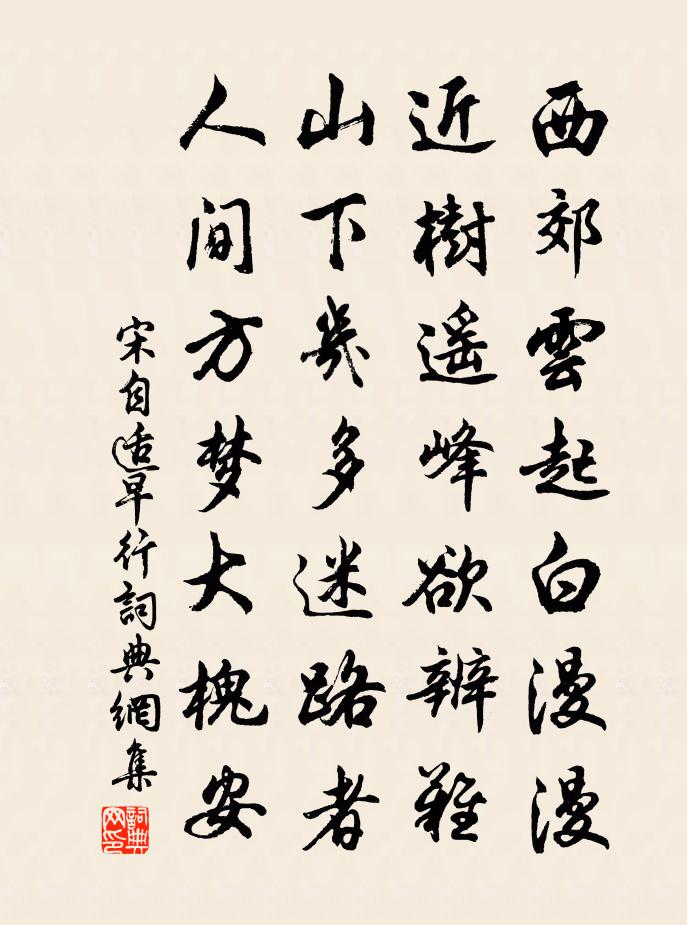 西郊雲起白漫漫
近樹遥峰欲辨難
山下幾多迷路者
人間方梦大槐安
宋自适早行詞典網集
詞典網印